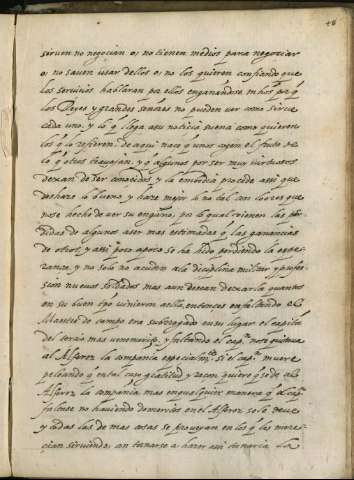 48
siruen no negocian o, no tienen medios para negociar
o, no sauen usar dellos o, no los quieren confiando que
los seruicios hablaran por ellos engañandose mhos por q̃ los
Reyes y grandes señores no pueden ver como sirue
cada uno, y lo q̃ llega a su noticia suena como quieren
los q̃ lo refieren. de aqui nace q̃ unos cojen el fruto de
lo q̃ otros trauajan, y q̃ algunos por ser muy virtuosos
dexan de ser conocidos y la embidia procede assi que
deshaze lo bueno, y haze mejor lo no tal con loores que
no se heche de ver su engaño, por lo qual vienen las per
didas de algunos a ser mas estimadas q̃ las ganancias
de otros, y assi poco a poco se ha hido perdiendo la espe
ranza, y no solo no acuden a la disciplina militar y profes
sion nueuos soldados mas aun dexan dexarla quantos
en su buen tpo uinieron a ella, entonces en faltando el
Maestre de campo era subrogado en su lugar el capitan
del tercio mas uenemerito, y faltando el capn. no se quitaua
al Alferez la compania especialmte. si el capn. muere
peleando q̃ en tal caso y razon quiere q̃ se de al
Alferez la compania mas en qualquier manera q̃ el capn.
faltase no hauiendo demeritos en el Alferez se le deue
y todas las de mas cosas se proueyan en los q̃ las mere
cian siruiendo, con tanarse a hazer assi tanaria la